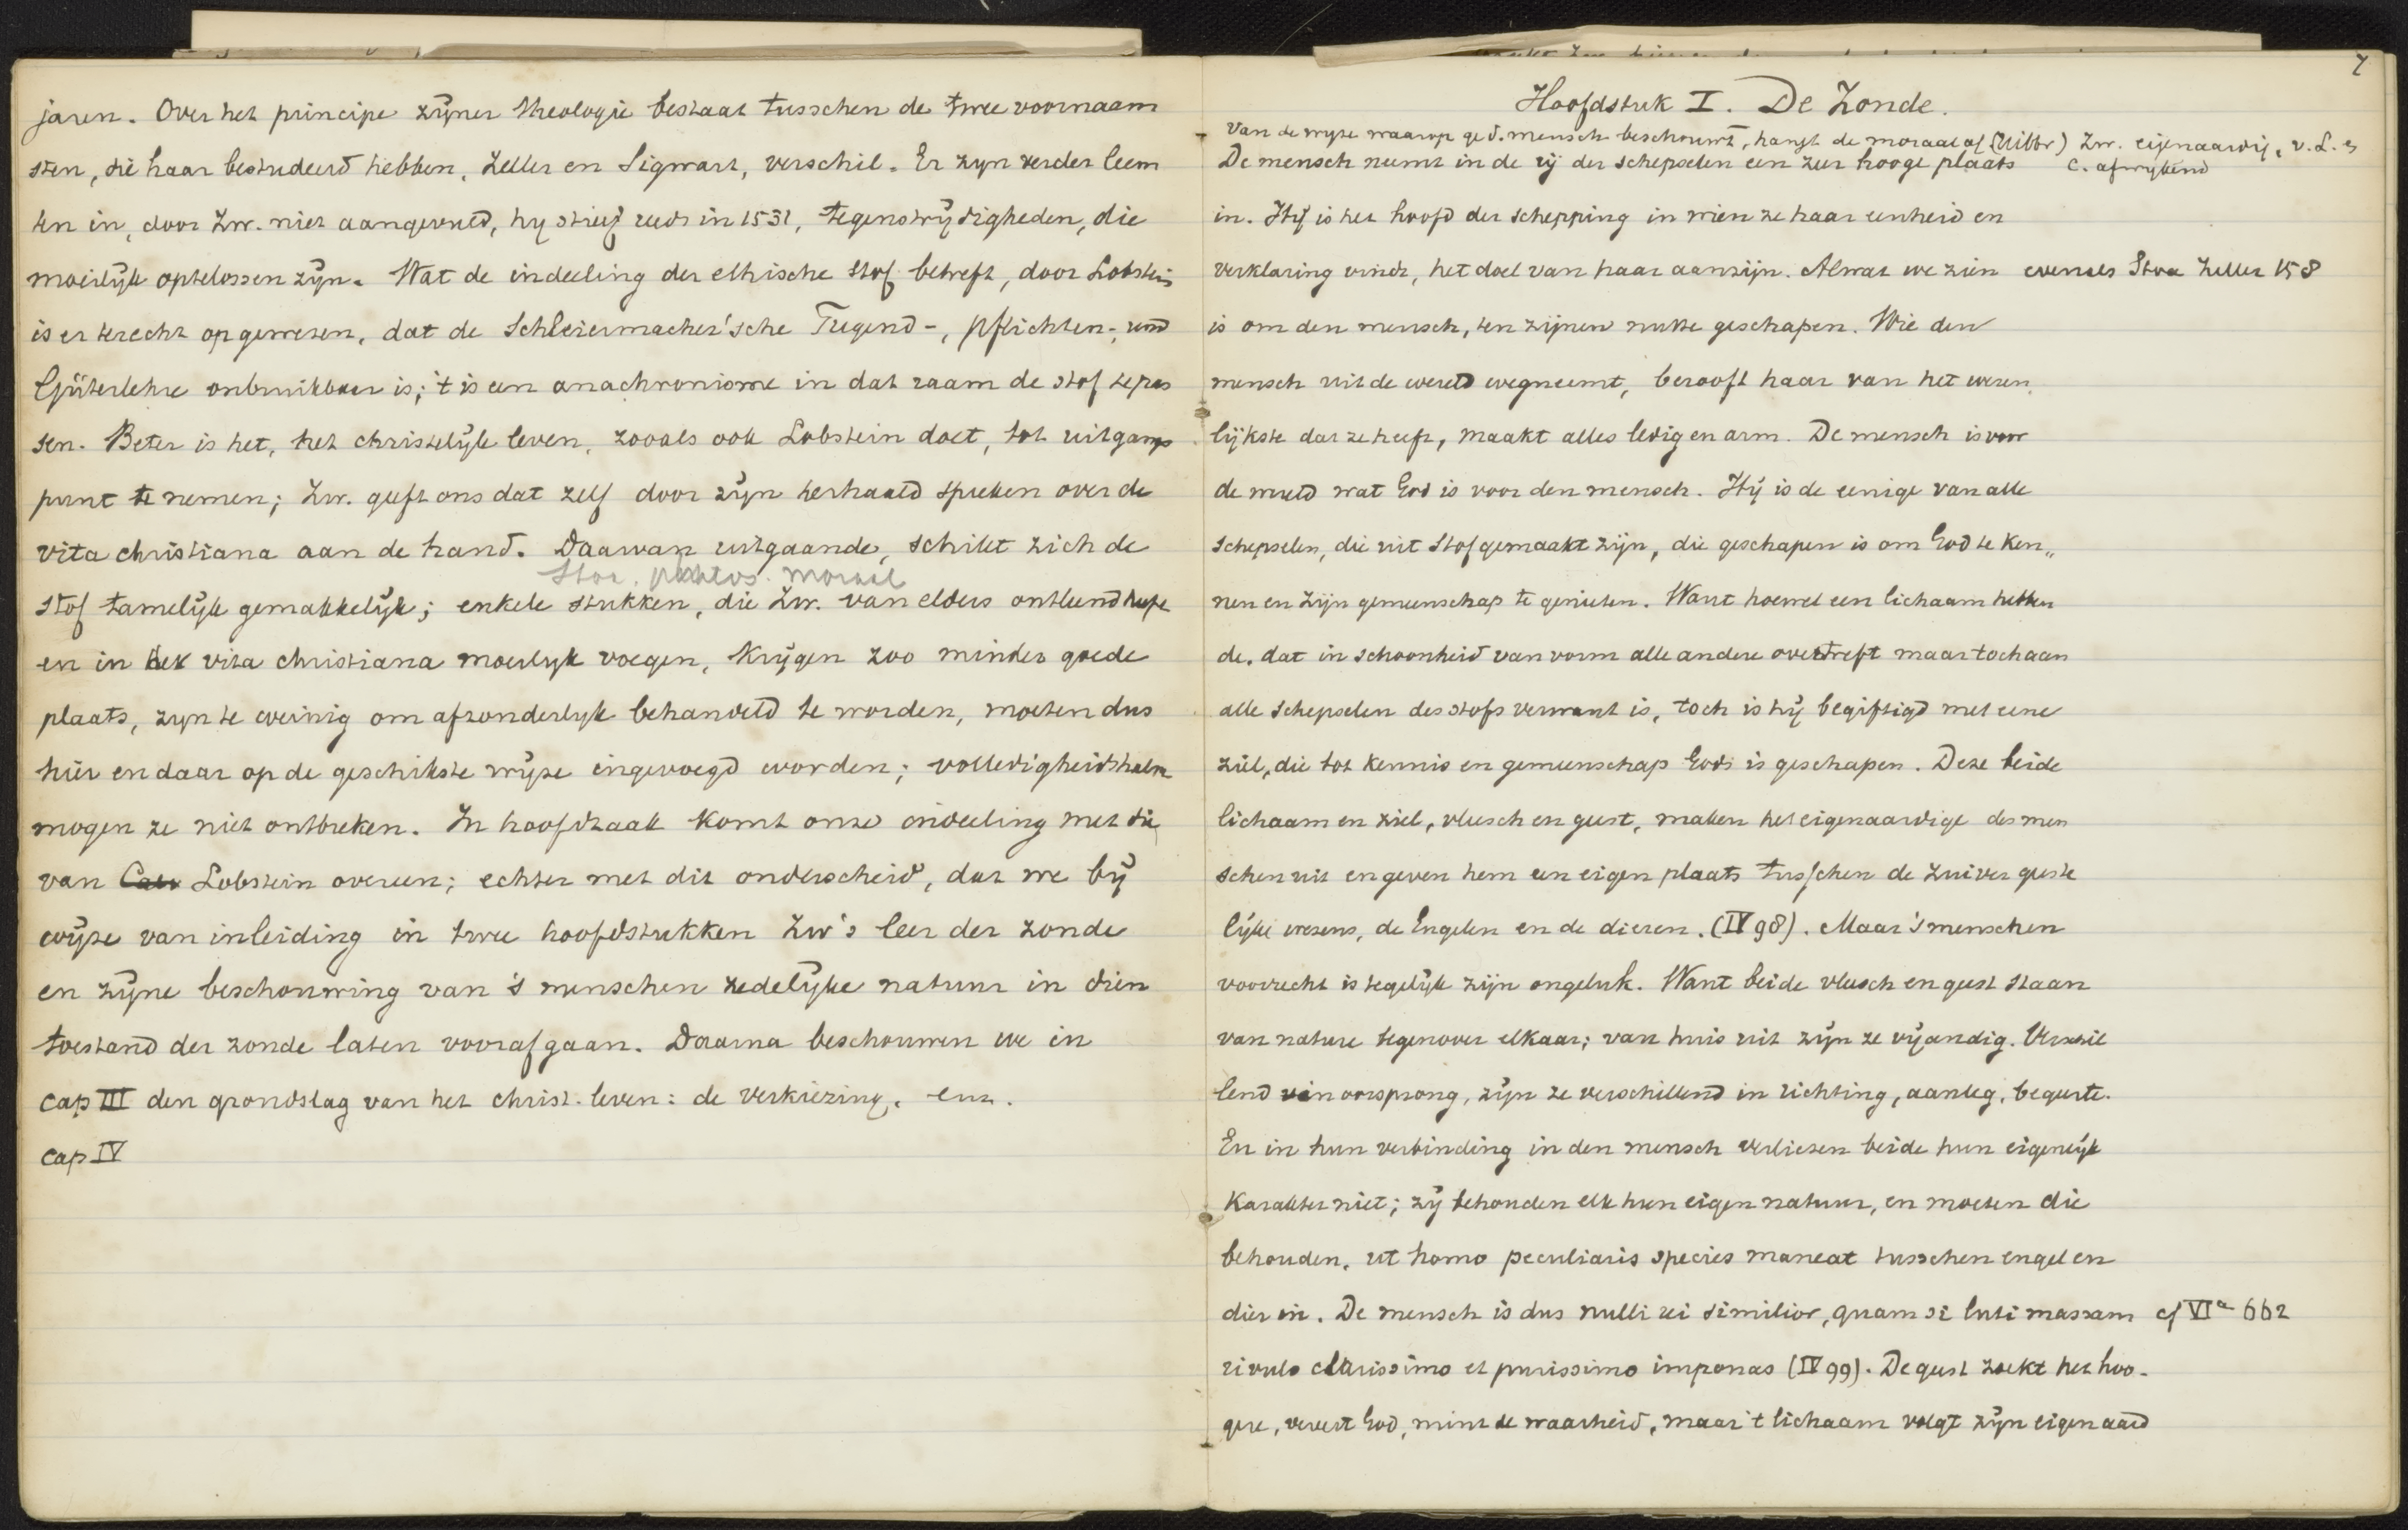 jaren. Over het principe zijner theologie bestaat tusschen de twee voornaam
sten, die haar bestudeerd hebben, Zeller en Sigwart, verschil. Er zyn verder leem
ten in, door Zw. niet aangevuld, hy stierf reeds in 1531, tegenstrijdigheden, die
moeilijk optelossen zijn. Wat de indeeling der ethische stof betreft, door Lobstein
is er terecht op gewezen, dat de Schleiermacher'sche Tugend-, pflichten-, und
Güterlehre onbruikbaar is; 't is een anachronisme in dat raam de stof te pas
sen. Beter is het, het christelijk leven, zooals ook Lobstein doet, tot uitgangs
punt te nemen; Zw. geeft ons dat zelf door zijn herhaald spreken over de
vita christiana aan de hand. Daarvan uitgaande, schikt zich de
Stoa. moraal
stof tamelijk gemakkelijk; enkele stukken, die Zw. van elders ontleend heeft
en in de vita christiana moeilyk voegen, krijgen zoo minder goede
plaats, zyn te weinig om afzonderlyk behandeld te worden, moeten dus
hier en daar op de geschikste wijze ingevoegd worden; volledigheidshalve
mogen ze niet ontbreken. In hoofdzaak komt onze indeeling met die
van Lobstein overeen; echter met dit onderscheid, dat we bij
wijze van inleiding in twee hoofdstukken Zw's leer der zonde
en zijne beschouwing van 's menschen zedelijke natuur in dien
toestand der zonde laten voorafgaan. Daarna beschouwen we in
cap III den grondslag van het christ. leven: de verkiezing. enz.
cap IV
7
Hoofdstuk I. De Zonde.
Van de wyze waarop ge d. mensch beschouwt, hangt de moraal af (Wittbr) Zw. eigenaardig, v. L. en
C. afwykend
De mensch neemt in de rij der schepselen een zeer hooge plaats
in. Hij is het hoofd der schepping in wien ze haar eenheid en
verklaring vindt, het doel van haar aanzijn. Alwat we zien evenals Stoa Zeller 158
is om den mensch, ten zijnen nutte geschapen. Wie den
mensch uit de wereld wegneemt, berooft haar van het wezen
lijkste dat ze heeft, maakt alles ledig en arm. De mensch is voor
de wereld wat God is voor den mensch. Hij is de eenige van alle
schepselen, die uit stof gemaakt zijn, die geschapen is om God te ken„
nen en zijn gemeenschap te genieten. Want hoewel een lichaam hebben
de, dat in schoonheid van vorm alle andere overtreft maar toch aan
alle schepselen des stofs verwant is, toch is hij begiftigd met eene
ziel, die tot kennis en gemeenschap Gods is geschapen. Deze beide
lichaam en ziel, vleesch en geest, maken het eigenaardige des men
schen uit en geven hem een eigen plaats tusschen de zuiver geeste
lijke wezens, de Engelen en de dieren. (IV 98). Maar 's menschen
voorrecht is tegelijk zijn ongeluk. Want beide vleesch en geest staan
van nature tegenover elkaar; van huis uit zijn ze vijandig. Verschil
lend in oorsprong, zijn ze verschillend in richting, aanleg, begeerte.
En in hun verbinding in den mensch verliezen beide hun eigenlijk
karakter niet; zij behouden elk hun eigen natuur, en moeten die
behouden, ut homo peculiaris species maneat tusschen engel en
dier in. De mensch is dus nulli rei similior, quam si luti massam cf VIa 662
rivulo clarissimo et purissimo imponas (IV 99). De geest zoekt het hoo-
gere, vereert God, mint de waarheid, maar 't lichaam volgt zijn eigen aard